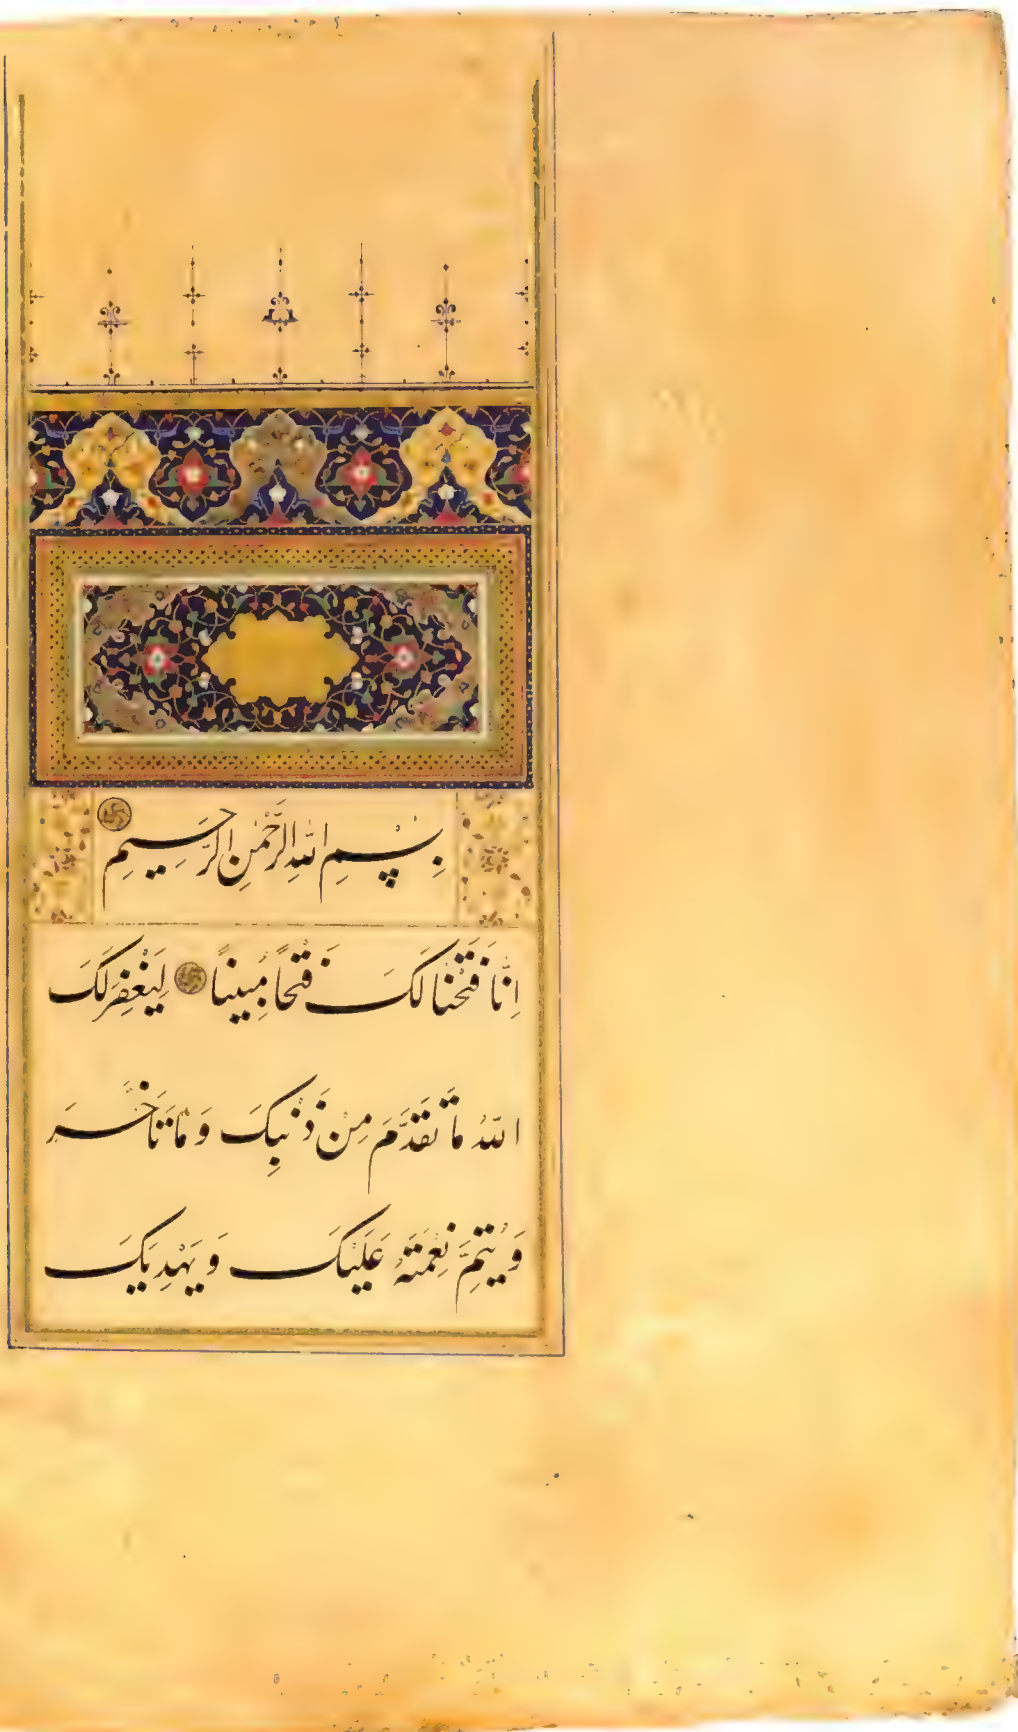 بِسْمِ اللّٰهِ الرَّحْمٰنِ الرَّحِیمِ
اِنَّا فَتَحْنَا لَکَ فَتْحًا مُبِینًا لِیَغْفِرَ لَکَ
اللّٰهُ مَا تَقَدَّمَ مِنْ ذَنْبِکَ وَ مَا تَاَخَّرَ
وَ یُتِمَّ نِعْمَتَهُ عَلَیْکَ وَ یَهْدِیَکَ